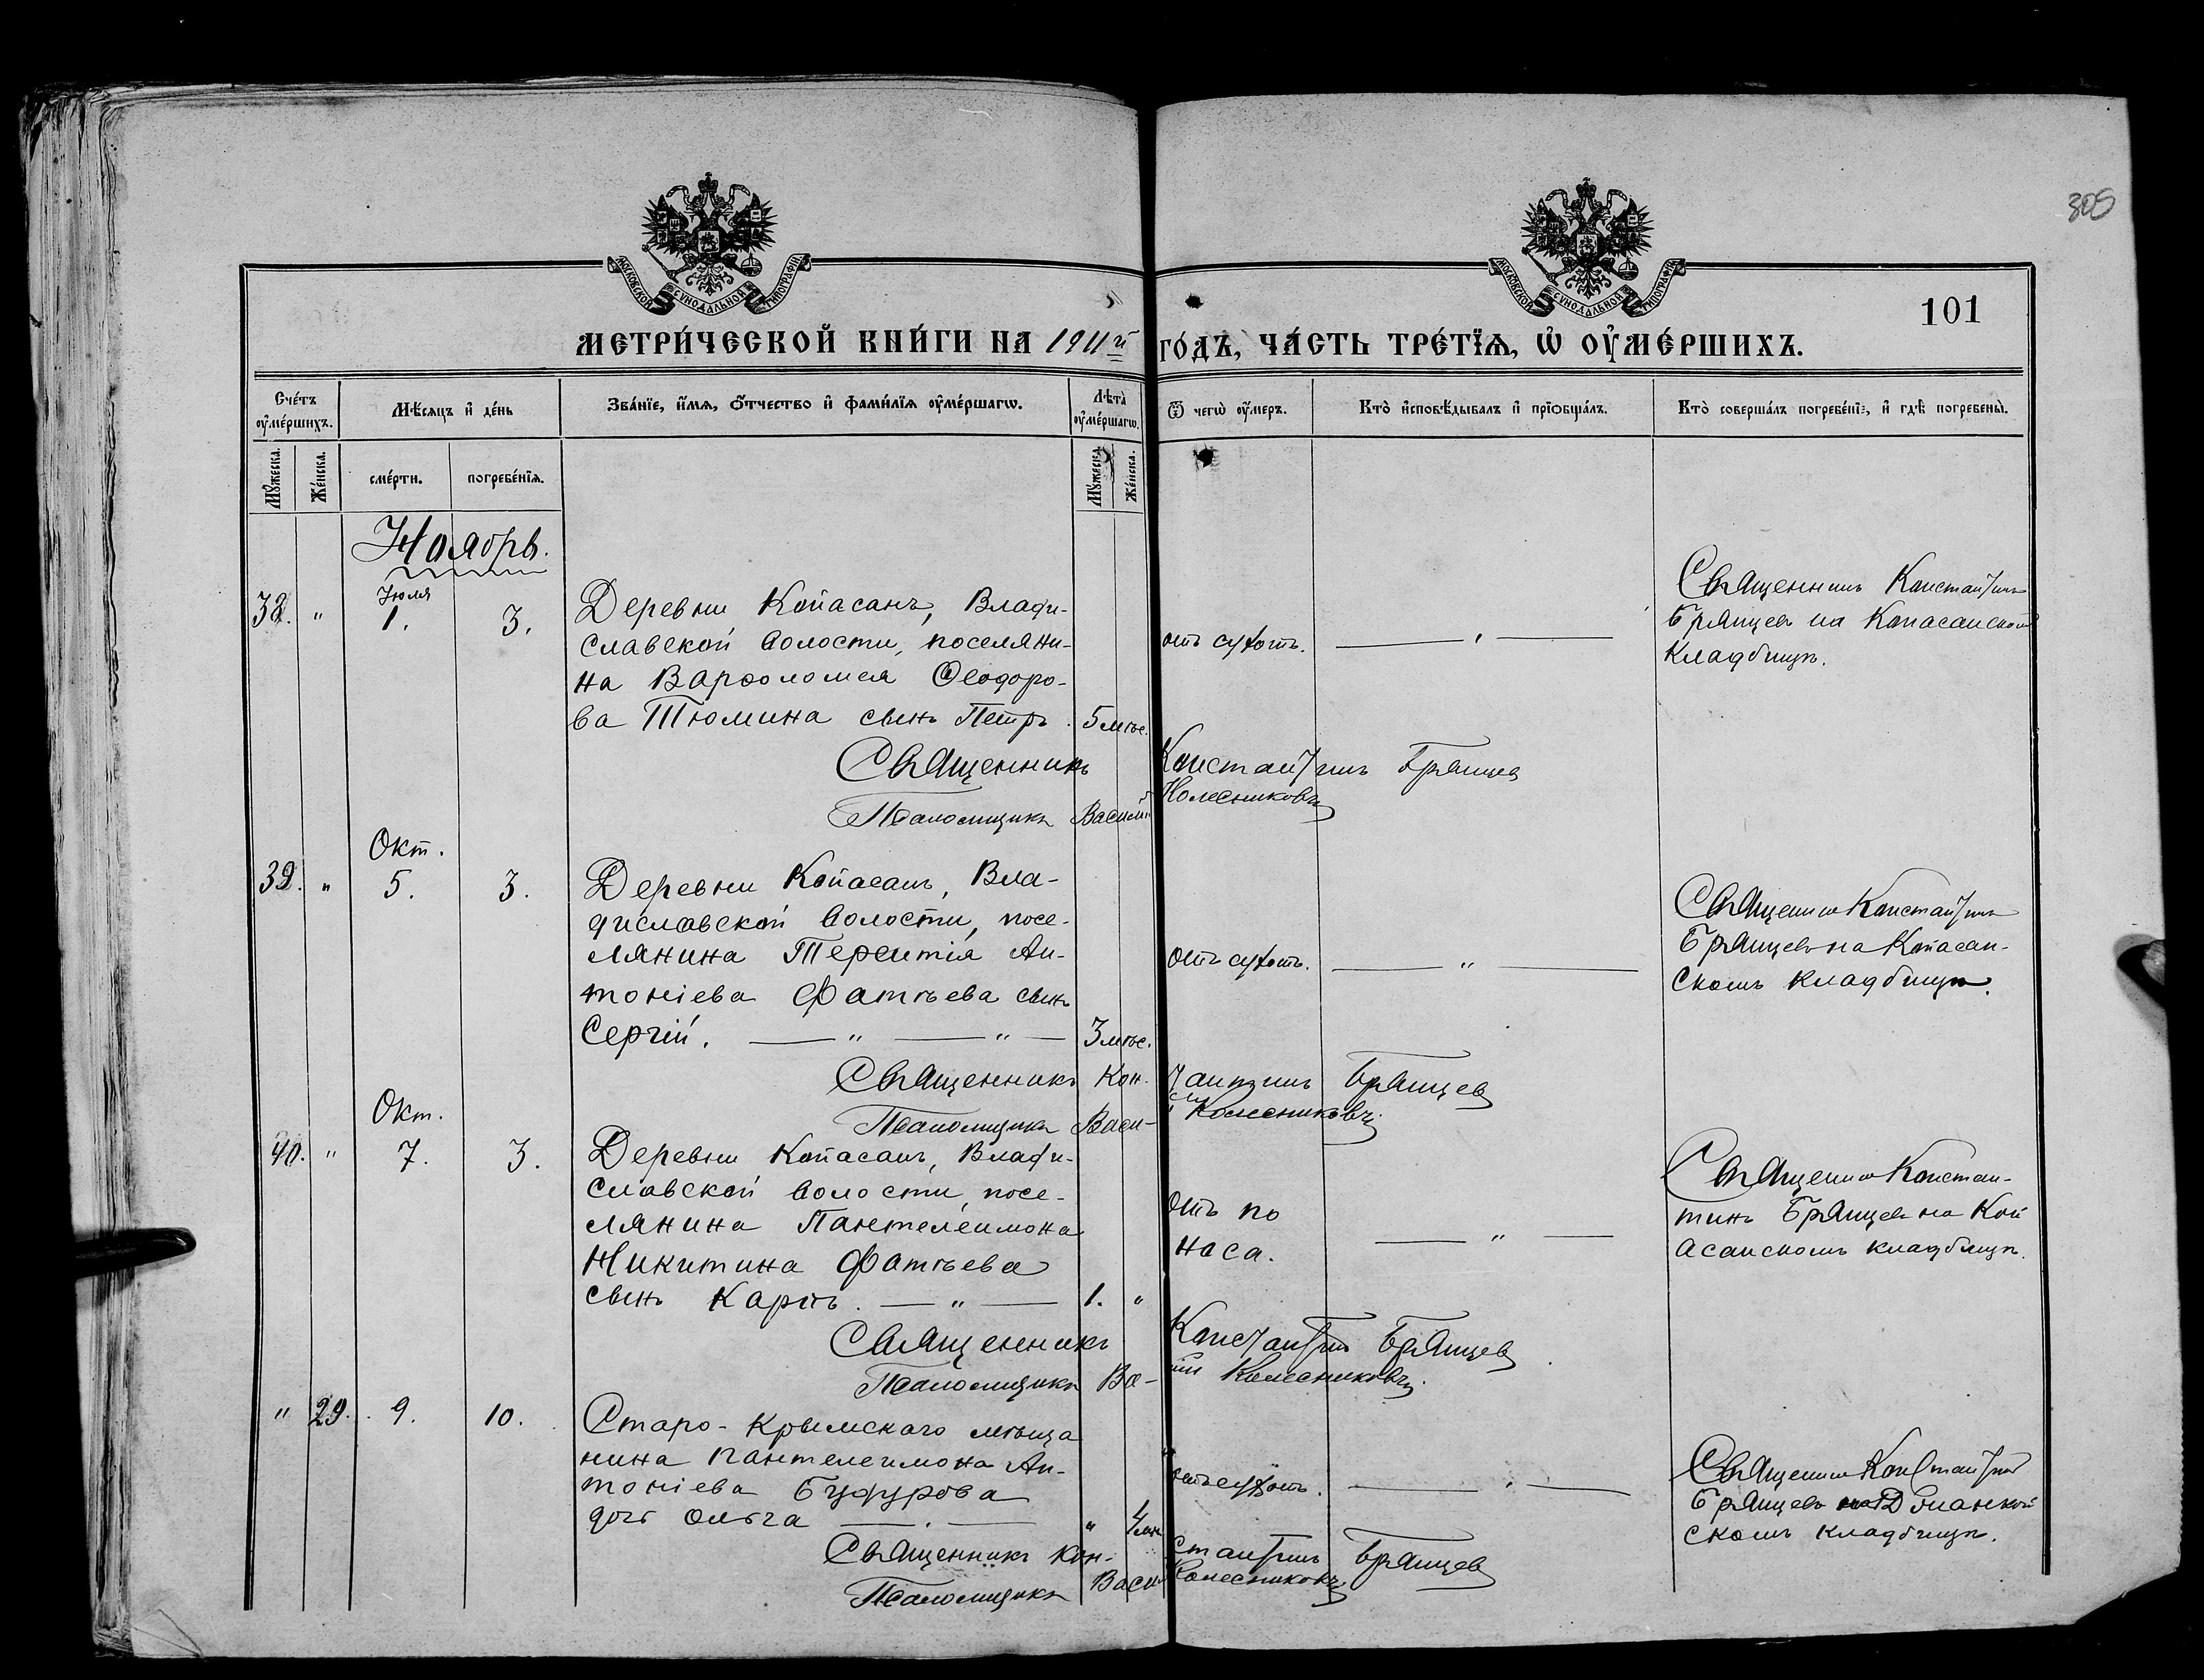 305
МОСКОВСКОЙ СУНОДАЛЬНОЙ ТИПОГРАФІИ
МОСКОВСКОЙ СУНОДАЛЬНОЙ ТИПОГРАФІИ
101
МЕТРИ́ЧЕСКОЙ КНИ́ГИ НА 1911й ГО́ДЪ, ЧА́СТЬ ТРЕ́ТЇѦ, Ѡ ОУ҆МЕ́РШИХЪ.
Сче́тъ оу҆ме́ршихъ.
Мѣ́сяцъ и҆ де́нь
Зва́нїе, и҆́мя, ѻ҆́тчество и҆ фами́лїя оу҆ме́ршагѡ.
Лѣ́та оу҆ме́ршагѡ.
Ѿ чегѡ̀ оу҆́меръ.
Кто̀ и҆сповѣ́дывалъ и҆ прїѻбща́лъ.
Кто̀ соверша́лъ погребе́нїе, и҆ гдѣ̀ погребены̀.
Мꙋ́жеска. Же́нска. сме́рти. погребе́нїя. Мꙋ́жеска. Же́нска.
Ноябрь.
Іюля
38. " 1. 3.
Деревни Копасанъ, Влади-
славской волости, поселяни-
на Варѳоломея Ѳеодоро-
ва Тюмина сынъ Петръ. 5 мѣс.
отъ сухотъ.
Священникъ Константинъ
Брянцевъ на Копасанском
кладбищѣ.
Священникъ Константинъ Брянцев
Псаломщикъ Василій Колесниковъ
Окт.
39. " 5. 3.
Деревни Копасанъ, Вла-
диславской волости, посе-
лянина Терентія Ан-
тоніева Фатѣева сынъ
Сергій. — " — " — 3 мѣс.
отъ сухотъ. — " —
Священник Константинъ
Брянцевъ на Копасан-
скомъ кладбищѣ.
Священникъ Константинъ Брянцев
Псаломщикъ Василій Колесниковъ.
Окт.
40. " 7. 3.
Деревни Копасанъ, Влади-
славской волости, посе-
лянина Пантелеимона
Никитина Фатѣева
сынъ Карпъ. — " — 1. "
отъ по
носа. — " —
Священник Констан-
тинъ Брянцев на Коп
асанскомъ кладбищѣ.
Священникъ Константин Брянцев
Псаломщикъ Ва- лій Колесниковъ.
" 29. 9. 10.
Старо-Крымскаго мѣща
нина Пантелеимона Ан-
тоніева
дочь Ольга " 4 мѣс
отъ сухотъ.
Священник Константин
Брянцевъ
скомъ кладбищѣ.
Священникъ Константинъ Брянцев
Псаломщикъ Васи Колесниковъ